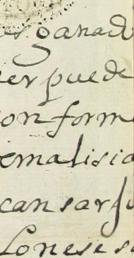 ganad
er puede
on form
emalisia
cansar
lonese s